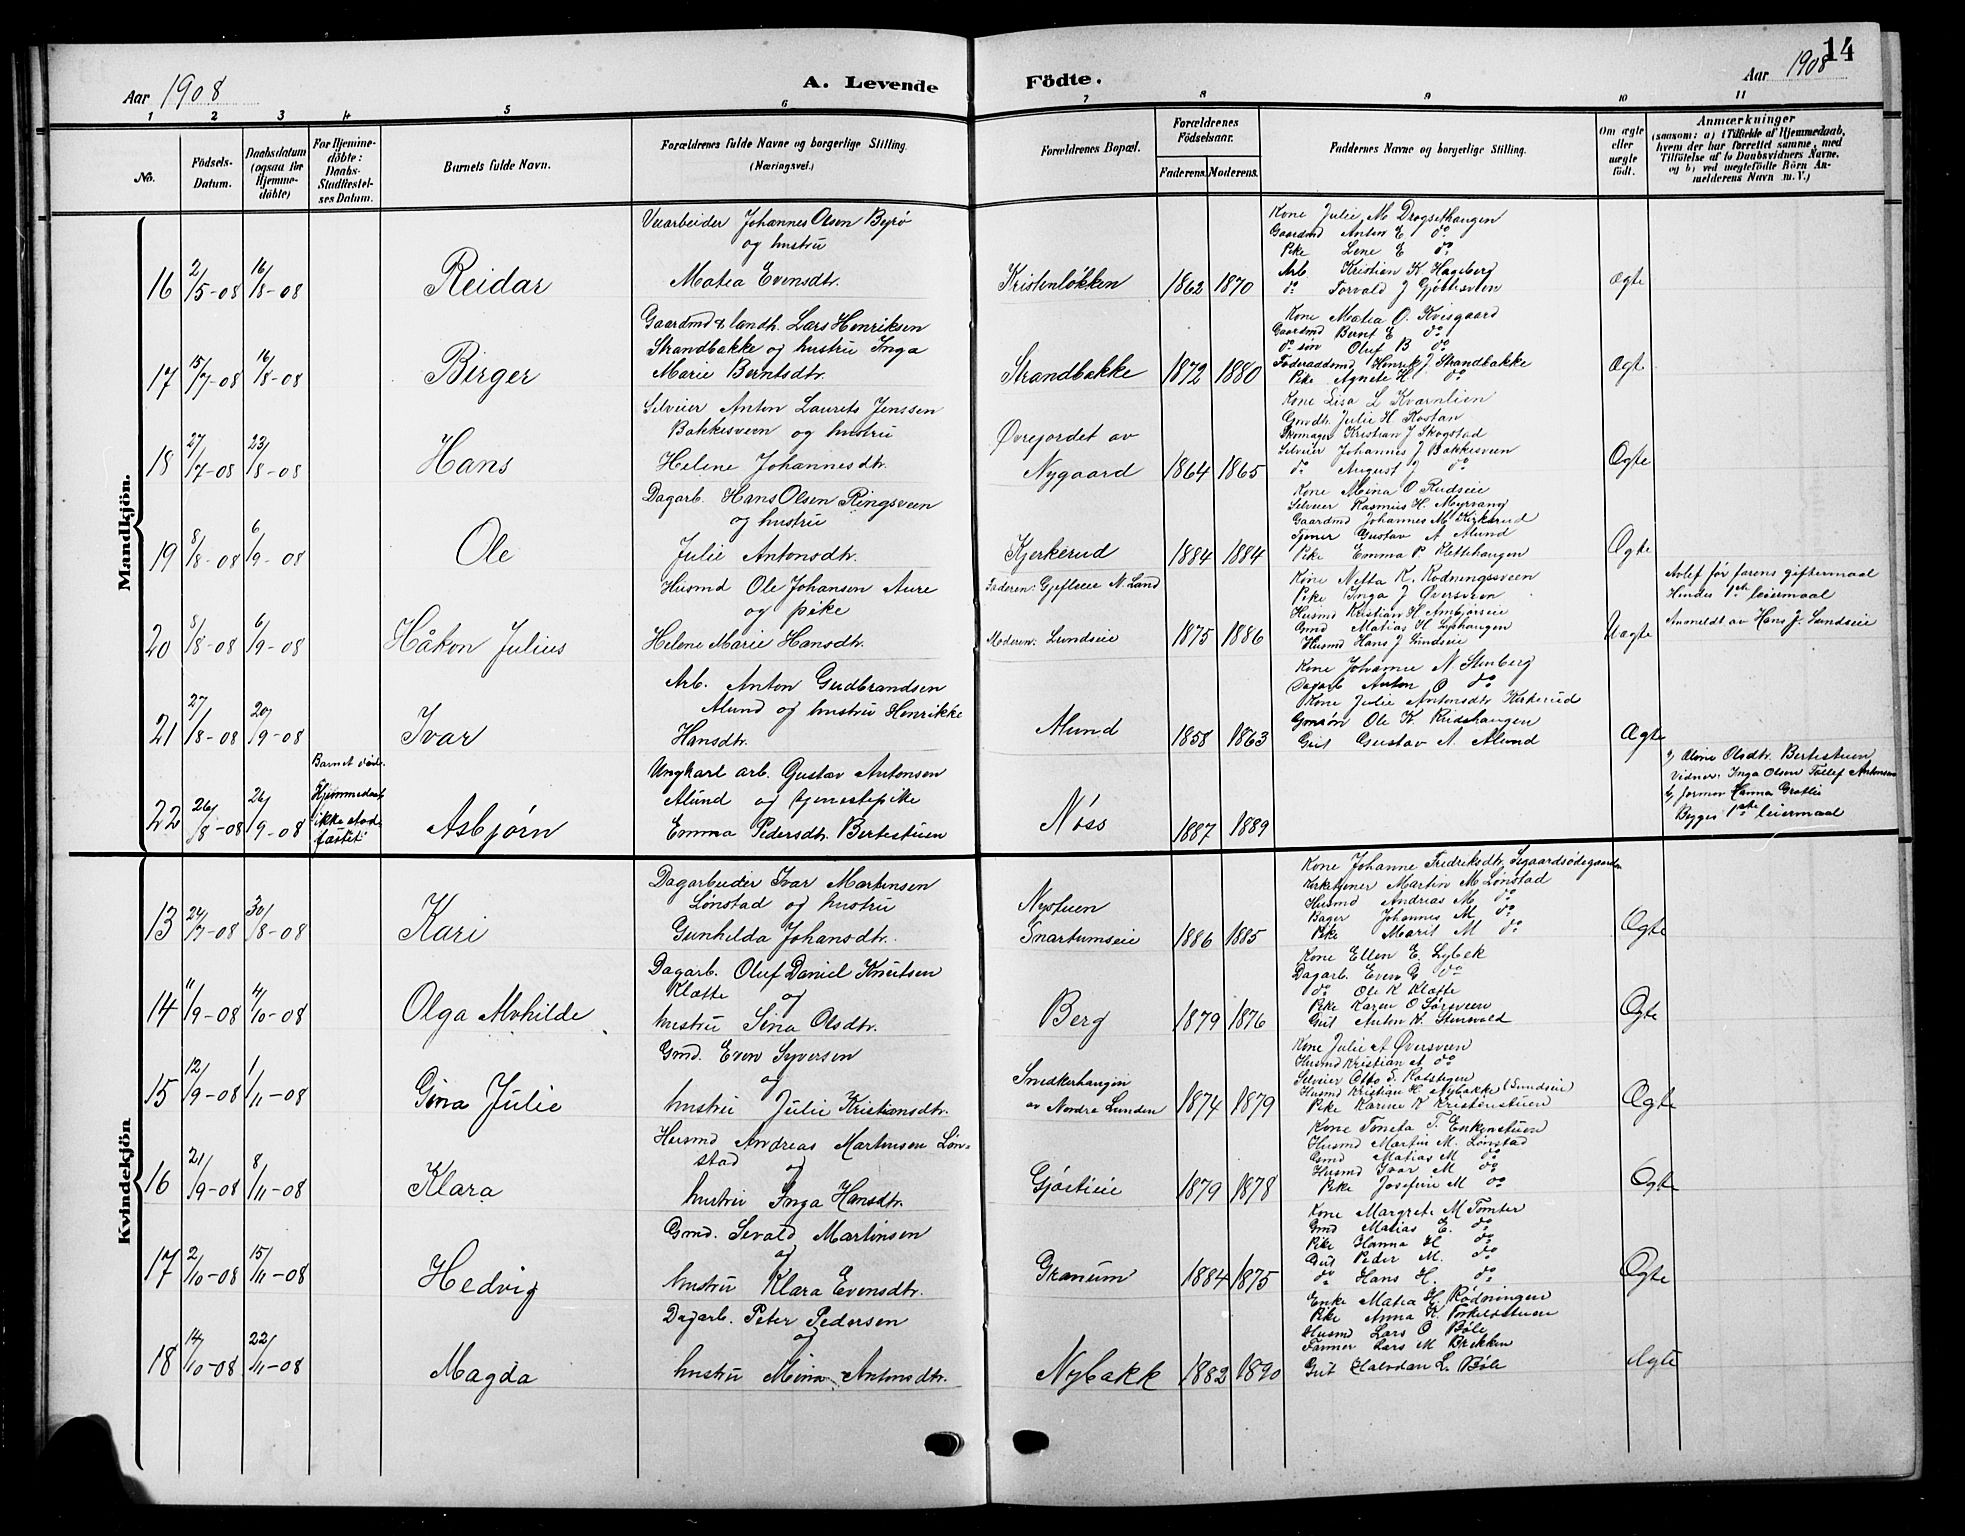 14
Aar 1908
A. Levende Födte.
Aar 1908
1 2 3 4 5 6 7 8 9 10 11
No.
Födsels-Datum.
Daabsdatum (ogsaa for Hjemmedöbte)
For Hjemmedöbte: Daabs-Stadfestelses Datum.
Barnets fulde Navn.
Forældrenes fulde Navne og borgerlige Stilling.
(Næringsvei.)
Forældrenes Bopæl.
Forældrenes Födselsaar.
Faderens. Moderens.
Faddernes Navne og borgerlige Stilling.
Om ægte eller uægte født.
Anmærkninger
(saasom: a) i Tilfælde af Hjemmedaab,
hvem der har forrettet samme, med
Tilföielse af to Daabsvidners Navne,
og b) ved uegtefödte Börn An-
melderens Navn m. V.)
Mandkjön.
16 2/5-08 16/8-08 Reidar
Johannes Olsen Byrø
og hustru
Matea Evensdtr.
Kristenløkken 1862 1870
Kone Julie M Drogsethaugen
Gaardmd Anton E do
Pike Lene E do
Arb. Kristian K Hageberg
do Torvald J
Ægte
17 15/7-08 16/8-08 Birger
Gaardmd & landh. Lars Henriksen
Strandbakke og hustru Inga
Marie Berntsdtr.
Strandbakke 1872 1880
Kone Matea O. Kvisgaard
Gaardmd Bernt E do
do søn Oluf B do
Føderaadsmd Henrik J Strandbakke
Pike Agnete H. do
Ægte
18 27/7-08 23/8-08 Hans
Selveier Anton Laurets Jenssen
Bakkesveen og hustru
Helene Johannesdtr.
Øvrejordet av
Nygaard 1864 1865
Kone Lisa L Kvernlien
Julie H Kostan
Skomager Kristian J Skogstad
Selveier Johannes J Bakkesveen
do August J do
Ægte
19 8/8-08 6/9-08 Ole
Dagarb. Hans Olsen Ringsveen
og hustru
Julie Antonsdtr.
Kjerkerud 1884 1884
Kone Mina O Rudseie
Selveier Rasmus H. Myrvang
Gaardmd Johannes M. Kirkerud
Tjener Gustav A Alund
Pike Emma P. Klettehaugen
Ægte
20 8/8-08 6/9-08 Håkon Julius
Husmd Ole Johansen Aure
og pike
Helene Marie Hansdtr.
Faderen: Gjefleeie N. Land
Moderen: Lundseie 1875 1886
Kone Netta K. Rodningssveen
Pike Inga J Øversveen
Husmd Kristian H. Ambjørseie
Gmd Matias H
Husmd Hans J Lundseie
Uægte
Avlet før farens giftermaal
Hindes 1ste leiermaal
Anmeldt av Hans J. Lundseie
21 27/8-08 20/9-08 Ivar
Arb. Anton Gudbrandsen
Alund og hustru Henrikke
Hansdtr.
Alund 1858 1863
Kone Johanne N. Stenberg
Dagarb Anton O do
Kone Julie Antonsdtr Kirkerud
Ole K Rudshaugen
Gut Gustav A. Alund
Ægte
22 26/8-08 26/9-08
Barnet døde.
Hjemmedaab
ikke stad-
fæstet
Asbjørn
Ungkarl arb. Gustav Antonsen
Alund og tjenestepike
Emma Pedersdtr. Bertestuen
Nøss 1887 1889
a) Aline Olsdtr. Bertestuen
Vidner: Inga Olsen Tollef Antonsen
b) Jormor Hanna Gratlie
Begges 1ste leiermaal
Kvindekjön
13 24/7-08 30/8-08 Kari
Dagarbeider Ivar Martinsen
Lønstad og hustru
Gunhilda Johansdtr.
Nystuen
Snartumseie 1886 1885
Kone Johanne Fredriksdtr.
Kirketjener Martin M Lønstad
Husmd Andreas M do
Bager Johannes M do
Pike Marit M do
Ægte
14 11/9-08 4/10-08 Olga Mohilde
Dagarb. Oluf Daniel Knutsen
Klætte og
hustru Sina Olsdtr.
Berg 1879 1876
Kone Ellen E. Lybek
Dagarb. Even G do
do Ole K Klætte
Pike Karen O Sørsveen
Gut Anton K. Stensvold
Ægte
15 12/9-08 1/11-08 Gina Julie
Gmd. Even Syversen
og
hustru Julie Kristiansdtr.
Smedkerhaugen
av Nordre Lunden 1874 1879
Kone Julie A Øversveen
Husmd Kristian A do
Selveier Otto S.
Husmd Kristian H. Nybakke (Lundseie)
Pike Karine K Kristenstuen
Ægte
16 21/9-08 8/11-08 Klara
Husmd Andreas Martinsen Løn-
stad og
hustru Inga Hansdtr.
Gjøstieie 1879 1878
Kone Toneta T. Enkenstuen
Husmd Martin M. Lønstad
Gmd Matias M do
Husmd Ivar M do
Pike Josefine M do
Ægte
17 2/10-08 15/11-08 Hedvig
Gmd. Sevald Martinsen
og
hustru Klara Evensdtr.
Granum 1884 1875
Kone Margrete M Tomter
Gmd Matias E. do
Pike Hanna H do
Gut Peder M. do
do Hans H. do
Ægte
18 14/10-08 22/11-08 Magda
Dagarb. Peter Pedersen
og
hustru Mina Antonsdtr.
Nybakk 1882 1890
Enke Matea H. Rødningen
Pike Anna K. Torkelsstuen
Husmd Lars O Bøle
Lars M Brekken
Gut Halvdan L. Bøle
Ægte